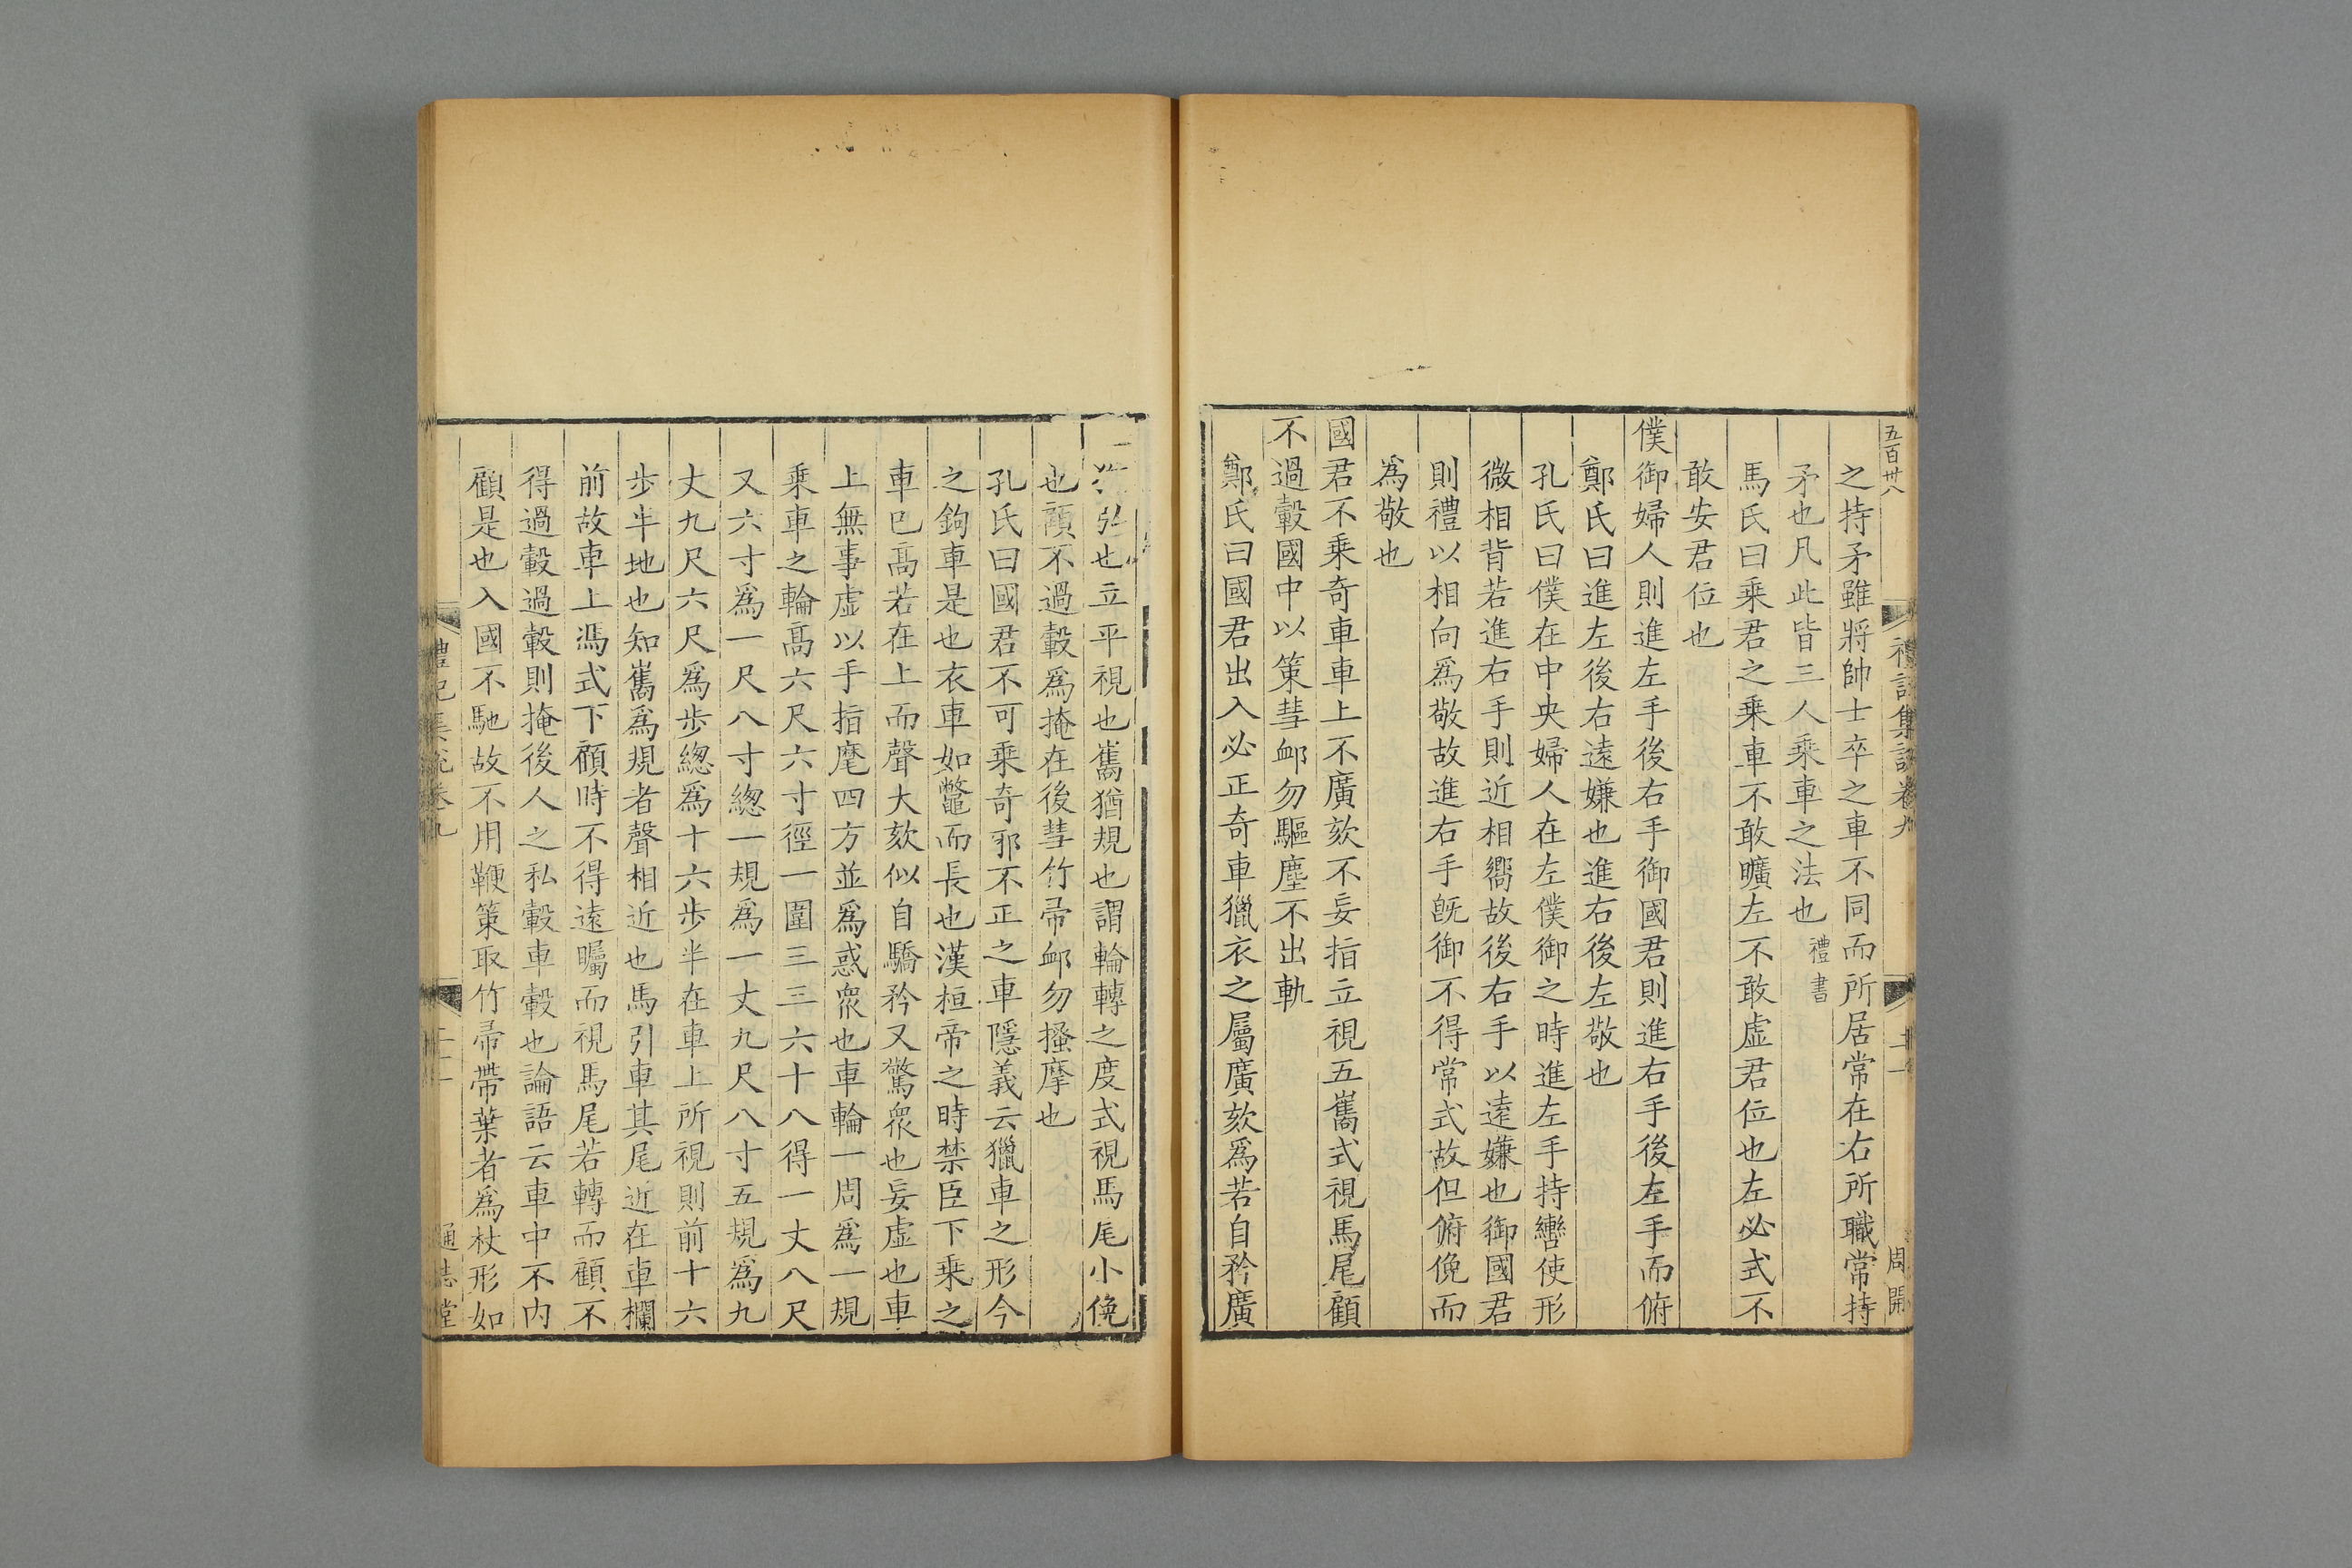 五百卅八
禮記集說卷九
十一
周開
之持矛雖將帥士卒之車不同而所居常在右所職常持
矛也凡此皆三人乘車之法也禮書
馬氏曰乘君之乘車不敢曠左不敢虛君位也左必式不
敢安君位也
僕御婦人則進左手後右手御國君則進右手後左手而俯
鄭氏曰進左後右遠嫌也進右後左敬也
孔氏曰僕在中央婦人在左僕御之時進左手持轡使形
微相背若進右手則近相嚮故後右手以遠嫌也御國君
則禮以相向爲敬故進右手旣御不得常式故但俯俛而
為敬也
國君不乘奇車車上不廣欬不妄指立視五巂式視馬尾顧
不過轂國中以策彗䘏勿驅塵不出軌
鄭氏曰國君出入必正奇車獵衣之屬廣欬爲若自矜廣
也立平視也巂猶規也謂輪轉之度式視馬尾小俛
也顧不過轂爲掩在後彗竹帚䘏勿搔摩也
孔氏曰國君不可乘奇邪不正之車隱義云獵車之形今
之鉤車是也衣車如鼈而長也漢桓帝之時禁臣下乘之
車已高若在上而聲大欬似自驕矜又驚衆也妄虛也車
上無事虛以手指麾四方並爲惑衆也車輪一周爲一規
乘車之輪高六尺六寸徑一圍三三六十八得一丈八尺
又六寸爲一尺八寸緫一規爲一丈九尺八寸五規爲九
丈九尺六尺爲步緫爲十六步半在車上所視則前十六
步半地也知巂爲規者聲相近也馬引車其尾近在車欄
前故車上馮式下顧時不得遠矚而視馬尾若轉而顧不
得過轂過轂則掩後人之私轂車轂也論語云車中不內
顧是也入國不馳故不用鞭策取竹帚帶葉者爲杖形如
禮記集說卷九
十一
通志堂